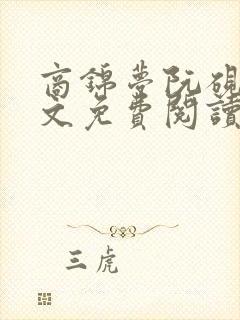 商錦夢阮硯
文免費閱讀
三虎